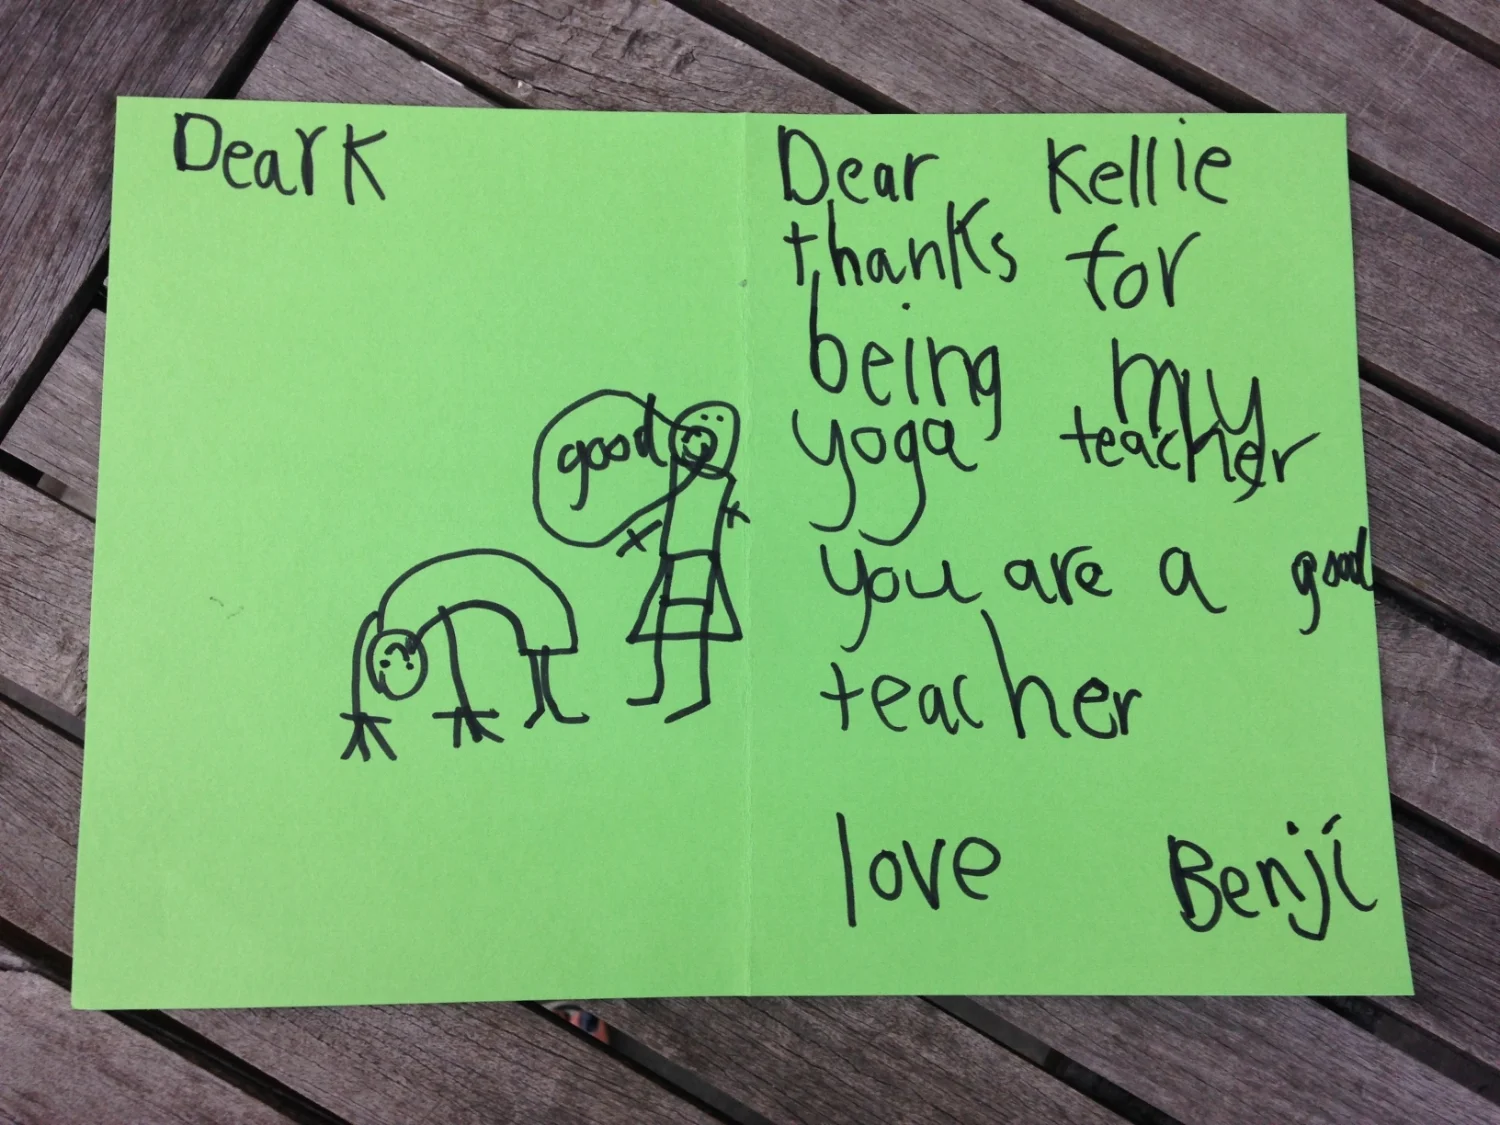 Dear K
good
Dear Kellie
thanks for
being my
yoga teacher
you are a good
teacher
love Benji